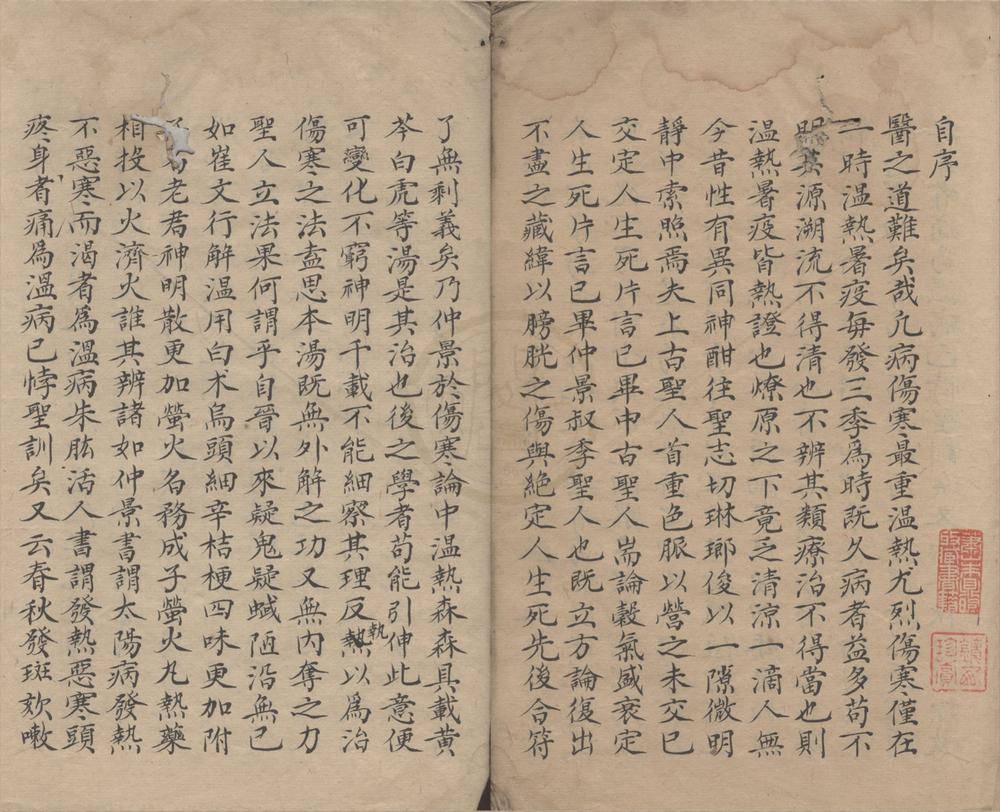 自序
醫之道難矣哉凢病傷寒最重溫熱尤烈傷寒僅在
一時溫熱暑疫每發三季為時旣久病者益多苟不
照其源溯流不得清也不辨其類療治不得當也則
溫熱暑疫皆熱證也燎原之下竟乏清涼一滴人無
今昔性有異同神酣往聖志切琳瑯俊以一隙微明
靜中索照焉夫上古聖人首重色脈以營之未交已
交定人生死片言已畢中古聖人耑論穀氣盛衰定
人生死片言已畢仲景叔季聖人也既立方論復出
不盡之藏緯以膀胱之傷與絕定人生死先後合符
了無剩義矣乃仲景於傷寒論中溫熱森森具載黃
芩白虎等湯是其治也後之學者苟能引伸此意便
可變化不窮神明千載不能細察其理反熱執以為治
傷寒之法盍思本湯既無外解之功又無內奪之力
聖人立法果何謂乎自晉以來疑鬼疑蜮陋沿無已
如崔文行解溫用白术烏頭細辛桔梗四味更加附
老君神明散更加螢火名務成子螢火丸熱藥
相投以火濟火誰其辨諸如仲景書謂太陽病發熱
不惡寒而渴者為溫病朱肱活人書謂發熱惡寒頭
疼身者痛為溫病已悖聖訓矣又云春秋發斑欬嗽